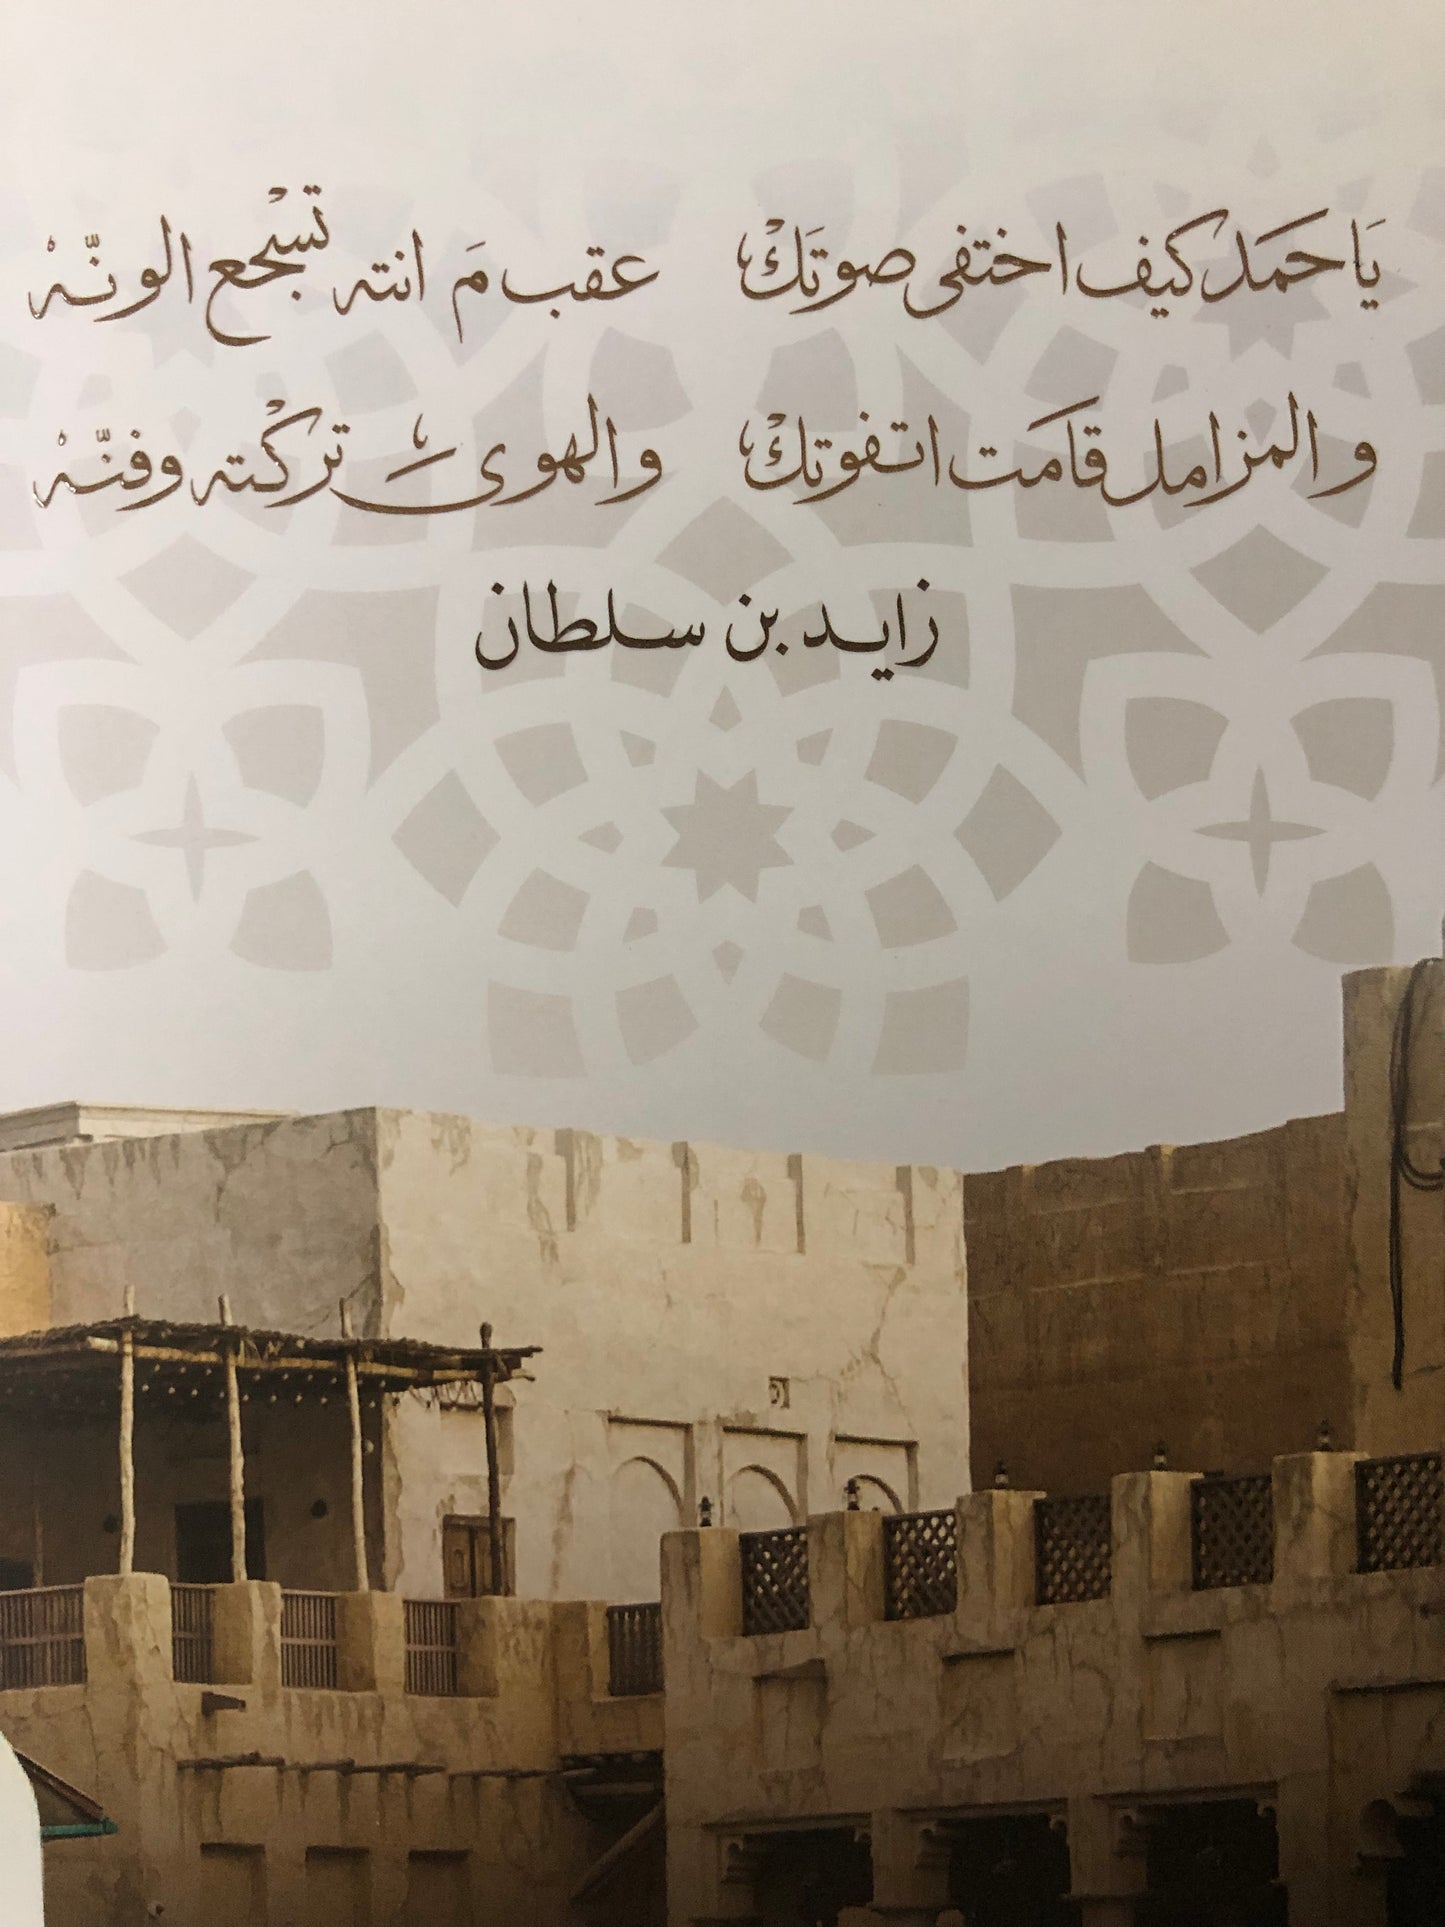 يَا حمَد كيف اختفى صوتَكْ عقب مَ انته تسْجع الونّهْ
والمزامل قامَت اتفوتكْ والهوى تركْته وفنّهْ
زايد بن سلطان